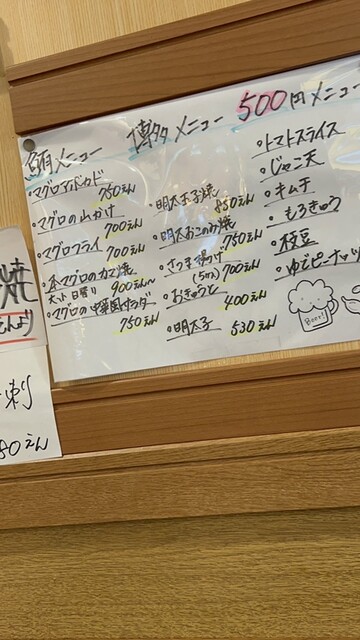 鮪メニュー
・マグロアボカド
750えん
・マグロの山かけ
700えん
・マグロフライ
700えん
・本マグロのカマ焼
大小日替り 900えん〜
・マグロの中華風サラダ
750えん
博多メニュー
・明太玉子焼
850えん
・明太おこのみ焼
750えん
・さつま揚げ
(5ケ) 700えん
・おきゅうと
400えん
・明太子 530えん
500円メニュー
・トマトスライス
・じゃこ天
・キムチ
・もろきゅう
・枝豆
・ゆでピーナッツ
Beer!
焼
刺
80えん